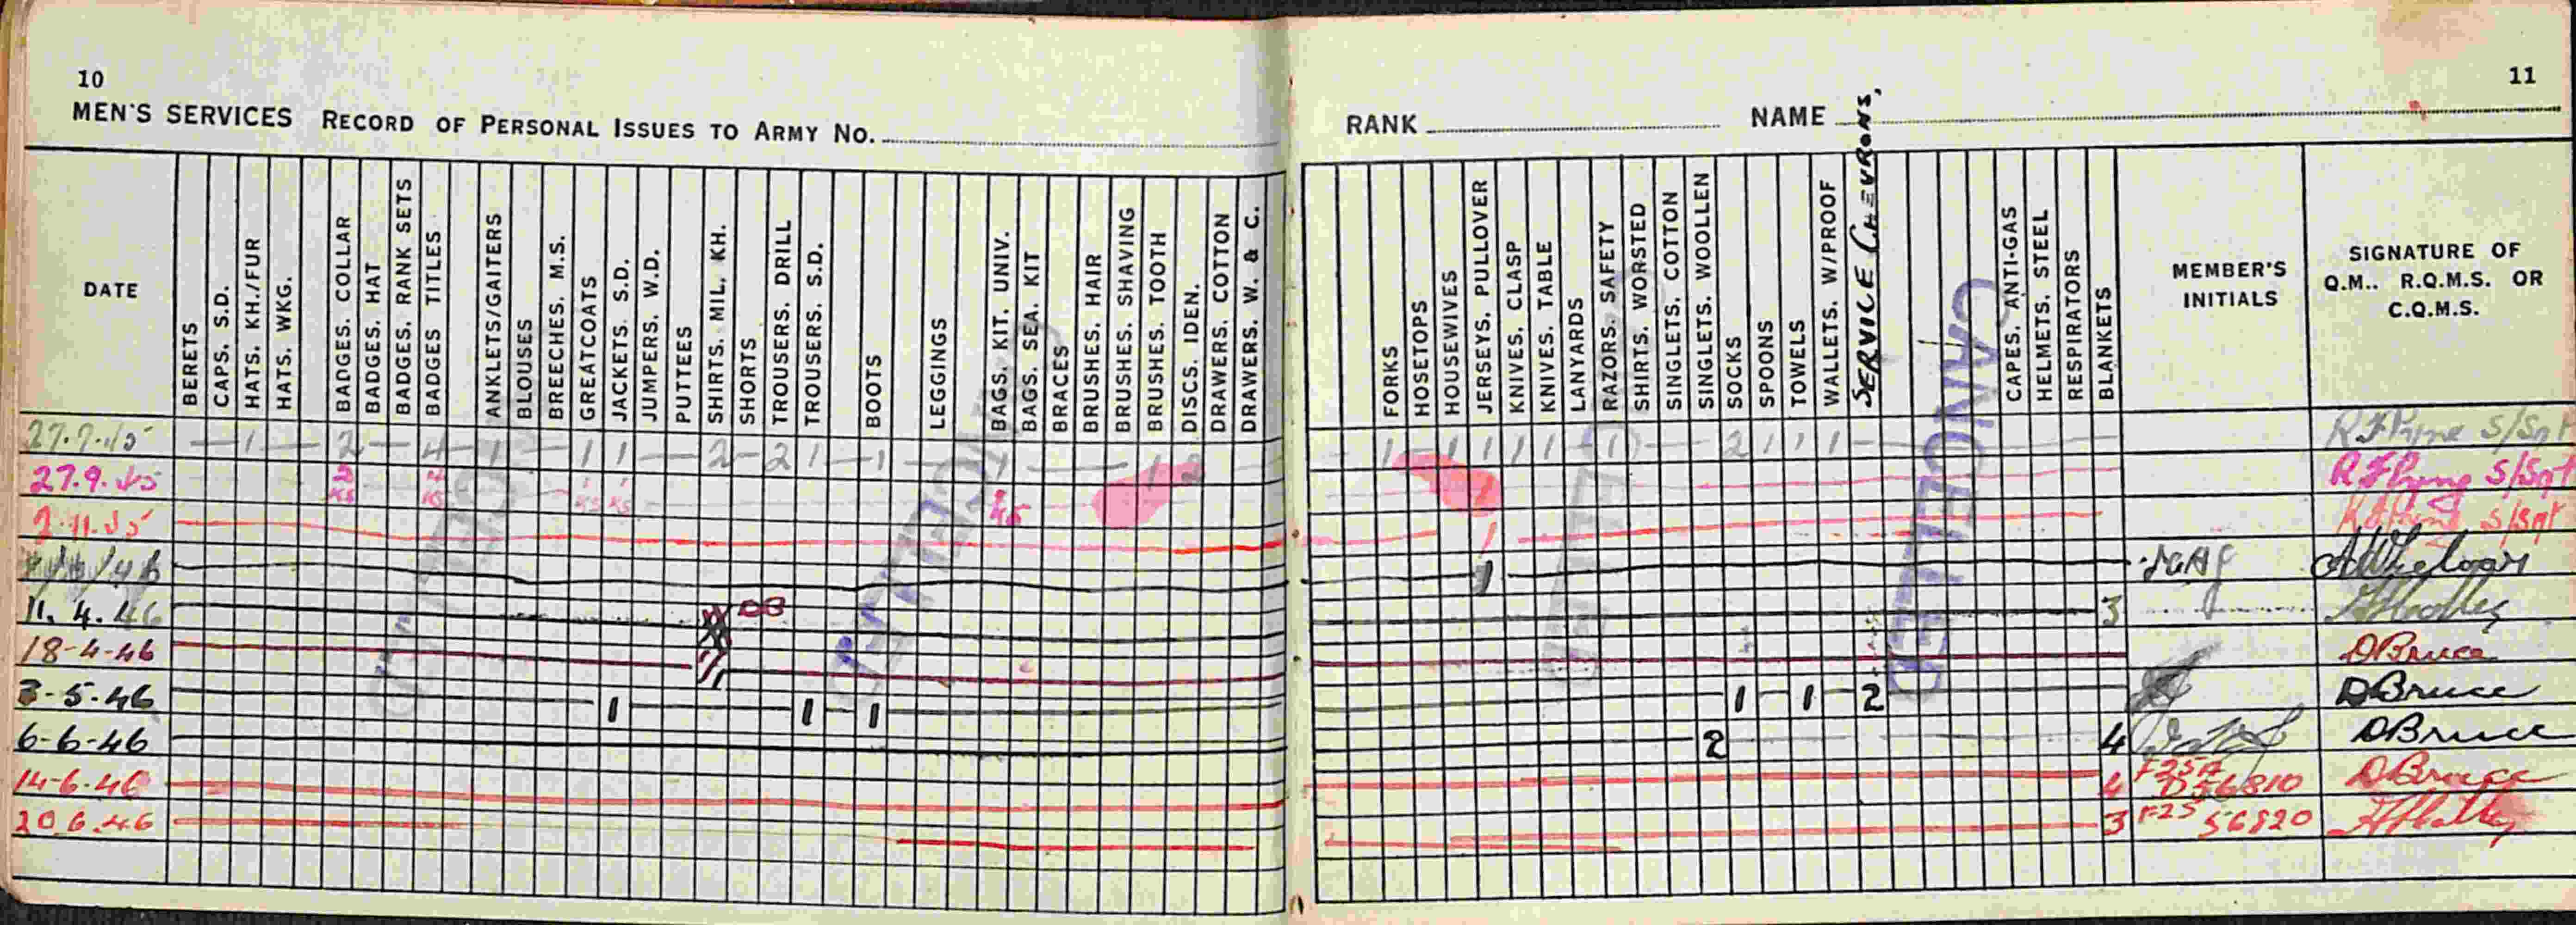 10
MEN'S SERVICES RECORD OF PERSONAL ISSUES TO ARMY No.
DATE BERETS CAPS. S.D. HATS. KH./FUR HATS. WKG. BADGES. COLLAR BADGES. HAT BADGES. RANK SETS BADGES TITLES ANKLETS/GAITERS BLOUSES BREECHES. M.S. GREATCOATS JACKETS. S.D. JUMPERS. W.D. PUTTEES SHIRTS. MIL. KH. SHORTS TROUSERS. DRILL TROUSERS. S.D. BOOTS LEGGINGS BAGS. KIT. UNIV. BAGS. SEA. KIT BRACES BRUSHES. HAIR BRUSHES. SHAVING BRUSHES. TOOTH DISCS. IDEN. DRAWERS. COTTON DRAWERS. W. & C.
1 2 4 1 1 1 2 2 1 1 1 1 2
27.9.45 2 4 1 1
KS KS KS KS KS
2.11.45
11.4.46 DB
18-4-46
3-5-46 1 1 1
6-6-46
14-6-46
20.6.46
CANCELLED
CANCELLED
11
RANK NAME
FORKS HOSETOPS HOUSEWIVES JERSEYS. PULLOVER KNIVES. CLASP KNIVES. TABLE LANYARDS RAZORS. SAFETY SHIRTS. WORSTED SINGLETS. COTTON SINGLETS. WOOLLEN SOCKS SPOONS TOWELS WALLETS. W/PROOF SERVICE CHEVRONS, CAPES. ANTI-GAS HELMETS. STEEL RESPIRATORS BLANKETS MEMBER'S INITIALS SIGNATURE OF Q.M.. R.Q.M.S. OR C.Q.M.S.
1 1 1 1 1 1 2 1 1 1 S/Sgt
1 S/Sgt
1 S/Sgt
1
3
DBruce
1 1 2 DBruce
2 4 DBruce
4 F25A 56810 DBruce
3 F25 56820
CANCELLED
CANCELLED